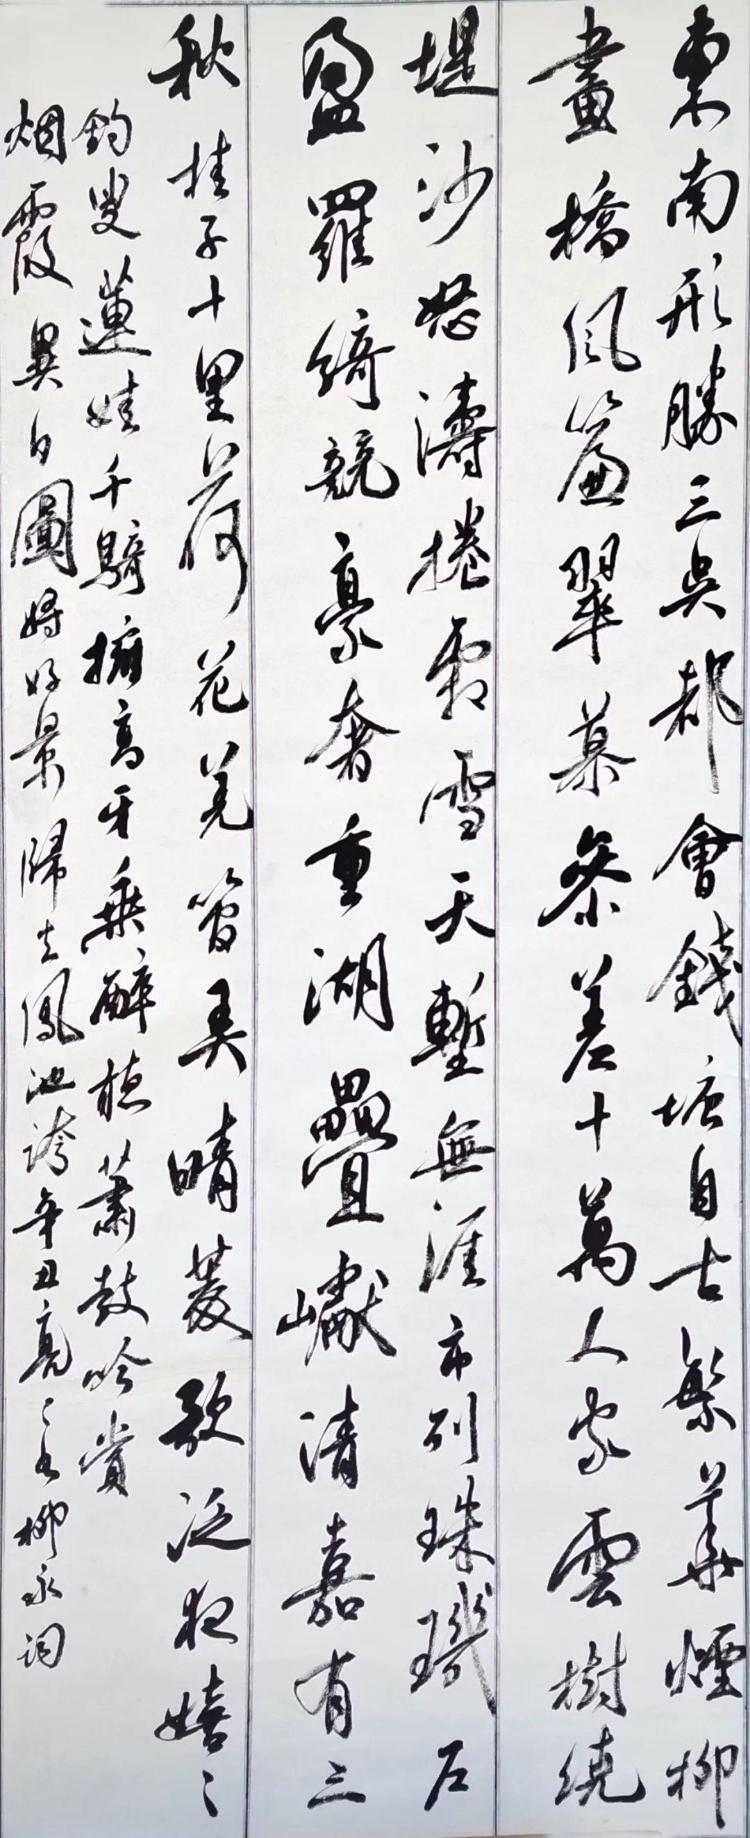 東南形勝三吳都會錢塘自古繁華煙柳
畫橋風簾翠幕參差十萬人家雲樹繞
堤沙怒濤捲霜雪天塹無涯市列珠璣戶
盈羅綺競豪奢重湖疊巘清嘉有三
秋桂子十里荷花羌管弄晴菱歌泛夜嬉々
釣叟蓮娃千騎擁高牙乘醉聽蕭鼓吟賞
烟霞異日圖將好景歸去鳳池誇辛丑亮々書柳永詞